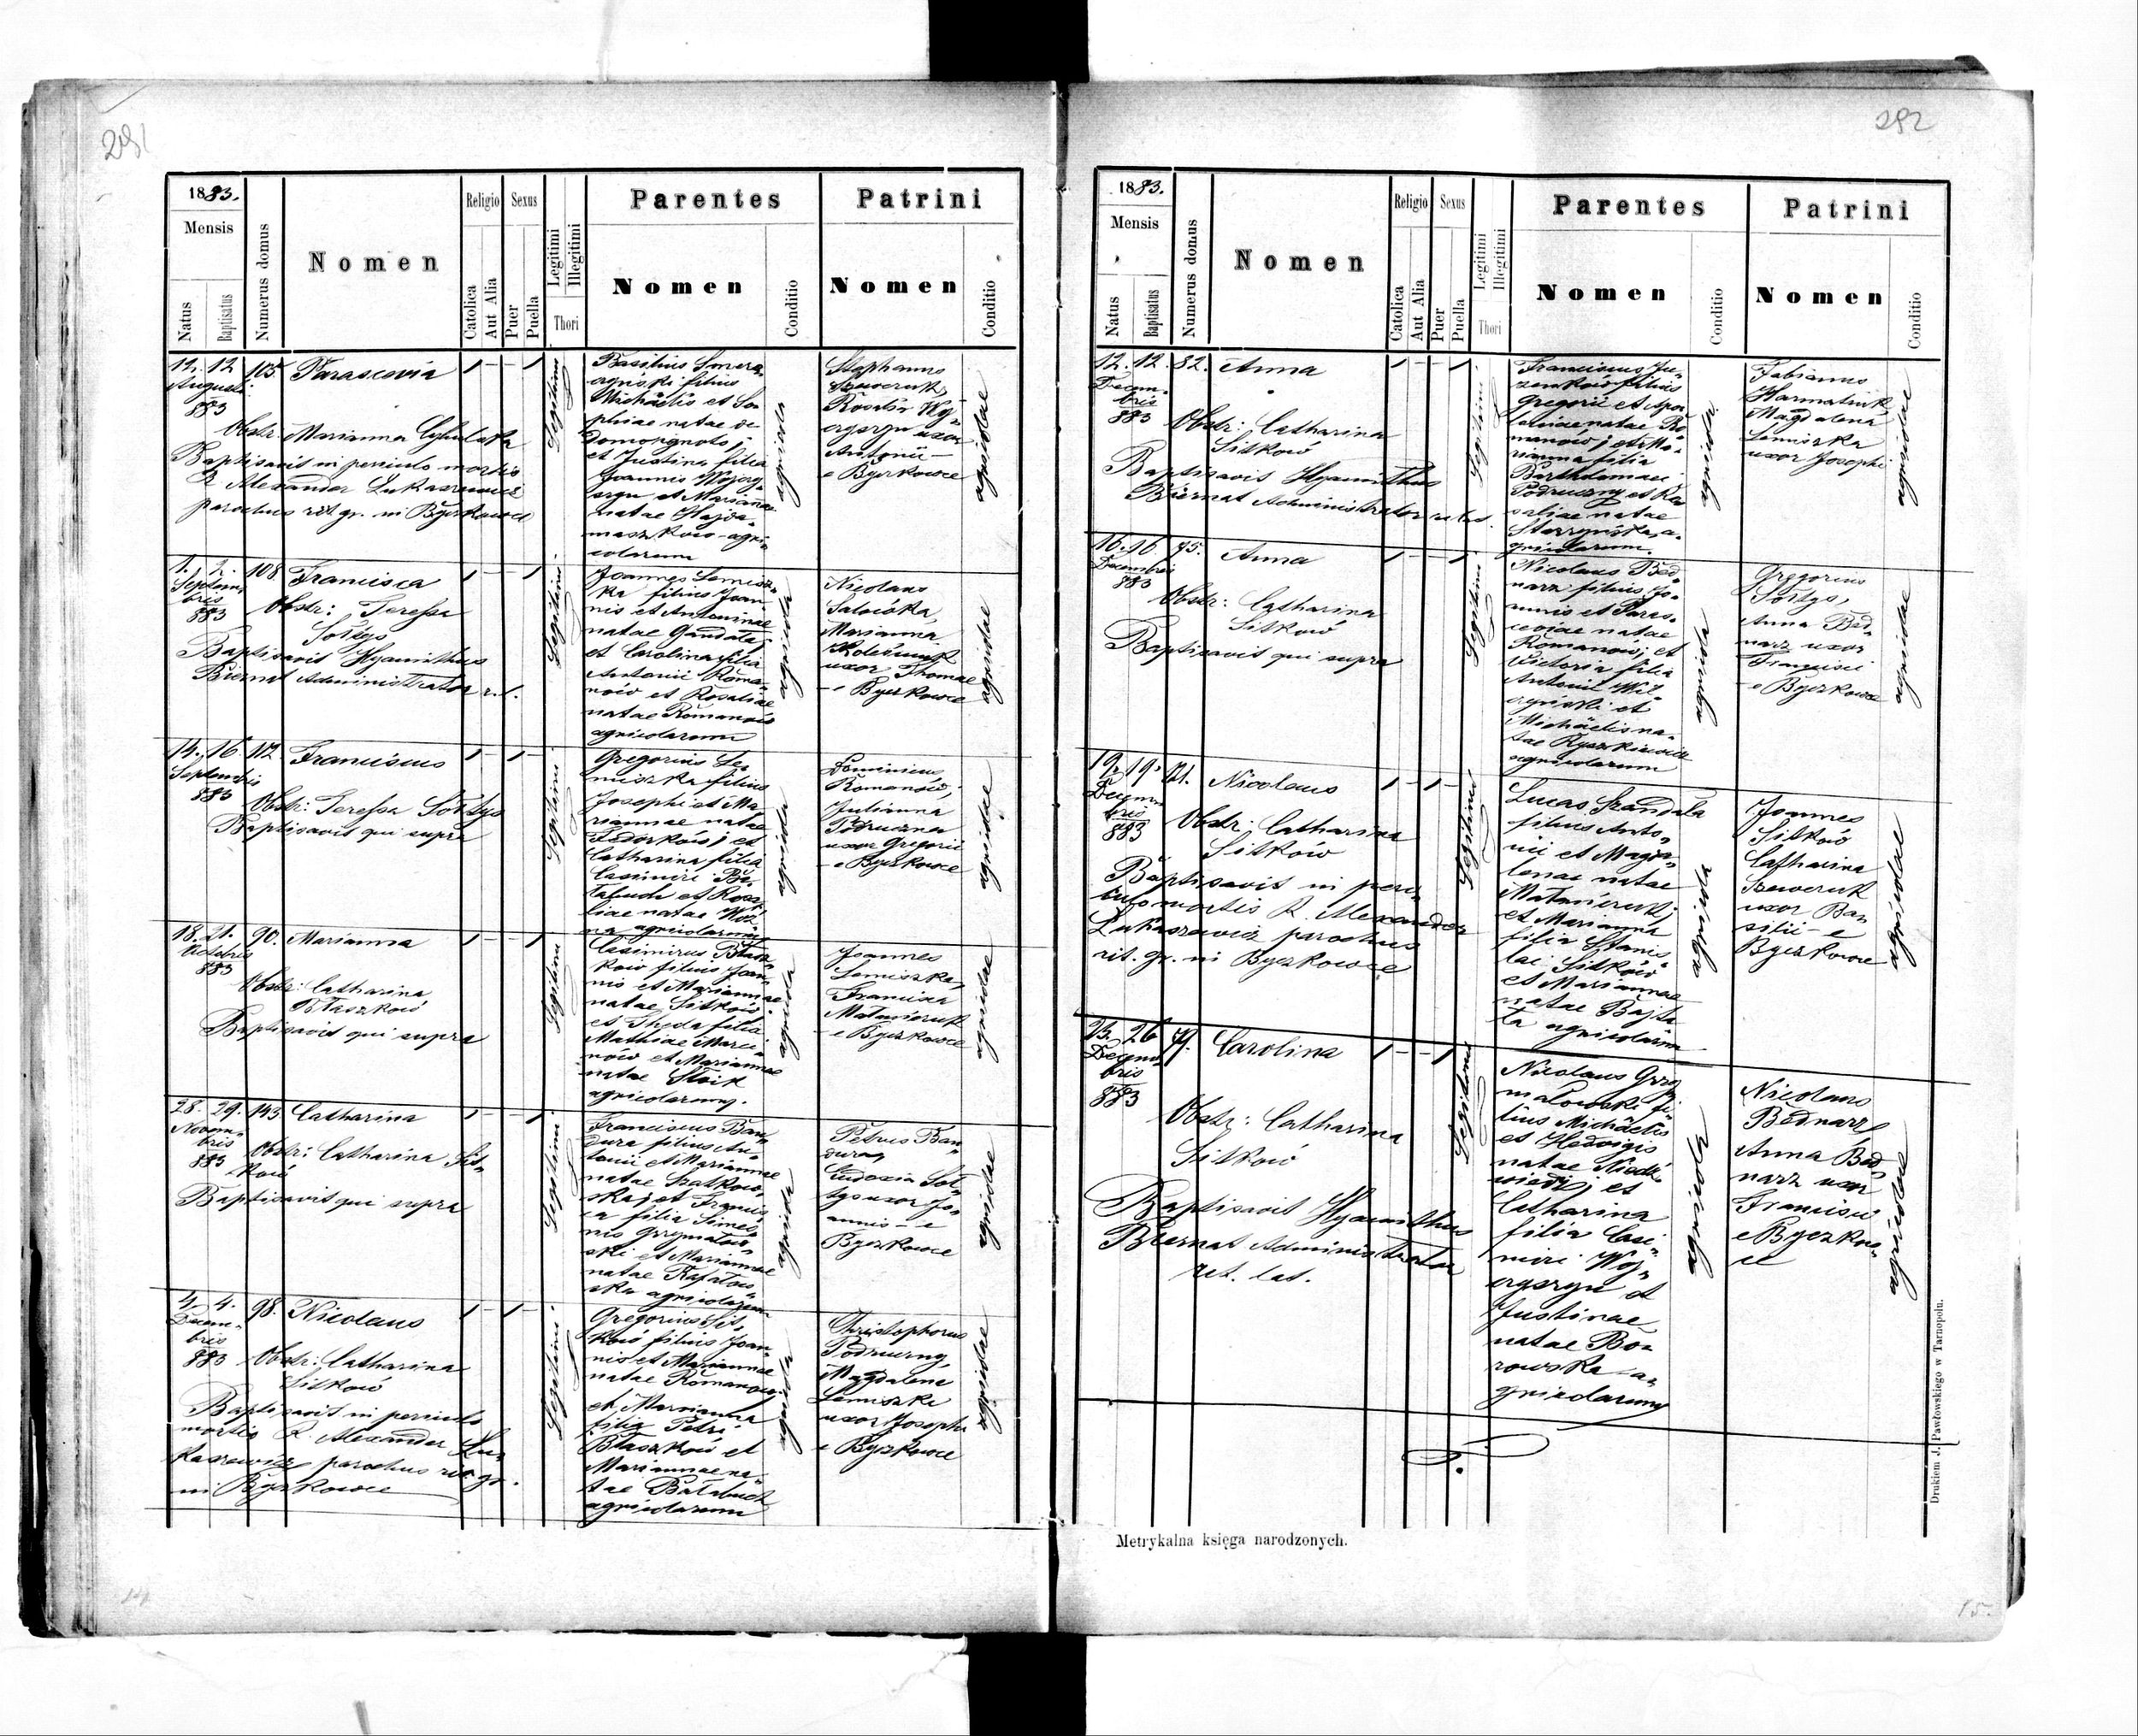 281
1883.
Mensis
Natus
Baptisatus
Numerus domus
Nomen
Religio
Catolica
Aut Alia
Sexus
Puer
Puella
Legitimi
Illegitimi
Thori
Parentes
Nomen
Conditio
Patrini
Nomen
Conditio
12. 12 105 Parascevia
Augusti
883
Obstr: Marianna
Baptisavit in periculo mortis
R. Alexander Lukaszewicz
parochus rit. gr. in Byczkowce
Legitimi
Basilius
filius
Michaëlis et So-
phiae natae de
et Justina filia
Joannis Wojcy-
czyn et Mariannae
natae Hajda-
maszków agri-
colarum
agricola
Stephanus
Szewczuk,
Rosalia Woj-
cyczyn uxor
Antonii -
e Byczkowce
agricolae
1. 2. 108 Francisca
Septem-
bris
883
Obstr: Teressa
Sołtys
Baptisavit Hyacinthus
Biernat Administrator r. l.
Legitimi
Joannes Lemisz-
ka filius Joan-
nis et Antoninae
natae Gandała;
et Carolina filia
Antonii Roma-
nów et Rosaliae
natae Romanów
agricolarum
agricola
Nicolaus
Marianna
uxor Thomae
- e Byczkowce
agricolae
14. 16 112. Franciscus
Septembris
883
Obstr: Teressa Sołtys
Baptisavit qui supra
Legitimi
Gregorius Le-
miszka filius
Josephi et Ma-
riannae natae
Fedorków; et
Catharina filia
Casimiri Ba-
łabuch et Rosa-
liae natae Woź-
na agricolarum
agricola
Dominicus
Romanów
Julianna
Podruczna
uxor Gregorii
- e Byczkowce
agricolae
18. 21. 90. Marianna
Octobris
883
Obstr: Catharina
Błaszków
Baptisavit qui supra
Legitimi
Casimirus Błasz-
ków filius Joan-
nis et Mariannae
natae Sitków
et Thecla filia
Mathiae Marci-
nów et Mariannae
natae
agricolarum.
agricola
Joannes
Lemiszka,
Francisca
- e Byczkowce
agricolae
28. 29. 143 Catharina
Novem-
bris
883
Obstr: Catharina Sit-
ków
Baptisavit qui supra
Legitimi
Franciscus Ban-
dura filius An-
tonii et Mariannae
natae Szatkow-
ska; et Francis-
ca filia Simeo-
nis Grzymałow-
ski et Mariannae
natae Rafałow-
ska agricolarum
agricola
Petrus Ban-
dura,
Eudoxia Soł-
tys uxor Jo-
annis - e
Byczkowce
agricolae
4. 4. 98. Nicolaus
Decem-
bris
883
Obstr: Catharina
Sitków
Baptisavit in periculo
mortis R. Alexander Lu-
kaszewicz parochus rit. gr.
in Byczkowce
Legitimi
Gregorius Sit-
ków filius Joan-
nis et Mariannae
natae Romanów;
et Marianna
filia Petri
Błaszków et
Mariannae na-
tae Bałabuch
agricolarum
agricola
Christophorus
Podruczny,
Magdalena
Lemiszka
uxor Josephi
e Byczkowce
agricolae
14
282
1883.
Mensis
Natus
Baptisatus
Numerus domus
Nomen
Religio
Catolica
Aut Alia
Sexus
Puer
Puella
Legitimi
Illegitimi
Thori
Parentes
Nomen
Conditio
Patrini
Nomen
Conditio
12. 12. 82. Anna
Decem-
bris
883
Obstr: Catharina
Sitków
Baptisavit Hyacinthus
Biernat Administrator rit. lat.
Legitimi
Franciscus
filius
Gregorii et Apo-
natae Ro-
manów; et Ma-
rianna filia
Bartholomaei
Podruczny et Ro-
saliae natae
a-
gricolarum.
agricola
Fabianus
Harmatiuk
Magdalena
Lemiszka
uxor Josephi
agricolae
16. 16 75. Anna
Decembris
883
Obstr: Catharina
Sitków
Baptisavit qui supra
Legitimi
Nicolaus Bed-
narz filius Jo-
annis et Paras-
ceviae natae
Romanów; et
Victoria filia
Antonii Wil-
czyński et
Michäelis na-
tae Ryszkiewicz
agricolarum
agricola
Gregorius
Sołtys,
Anna Bed-
narz uxor
Francisci
- e Byczkowce
agricolae
19. 19. 121. Nicolaus
Decem-
bris
883
Obstr: Catharina
Sitków
Baptisavit in peri-
culo mortis R. Alexander
Lukaszewicz parochus
rit. gr. in Byczkowce
Legitimi
Lucas Szandała
filius Anto-
nii et Magda-
lenae natae
et Marianna
filia Stanis-
lai Sitków
et Mariannae
natae Bajta-
ła agricolarum
agricola
Joannes
Sitków
Catharina
Szewczuk
uxor Ba-
silii - e
Byczkowce
agricolae
25. 26 79. Carolina
Decem-
bris
883
Obstr: Catharina
Sitków
Baptisavit Hyacinthus
Biernat Administrator
rit. lat.
Legitimi
Nicolaus Grzy-
małowski fi-
lius Michäelis
et Hedvigis
natae Niedź-
wiedź; et
Catharina
filia Casi-
miri Woj-
cyczyn et
Justinae
natae Bo-
rowska a-
gricolarum
agricola
Nicolaus
Bednarz
Anna Bed-
narz uxor
Francisci
e Byczkow-
ce
agricolae
Metrykalna księga narodzonych.
Drukiem J. Pawłowskiego w Tarnopolu.
15.